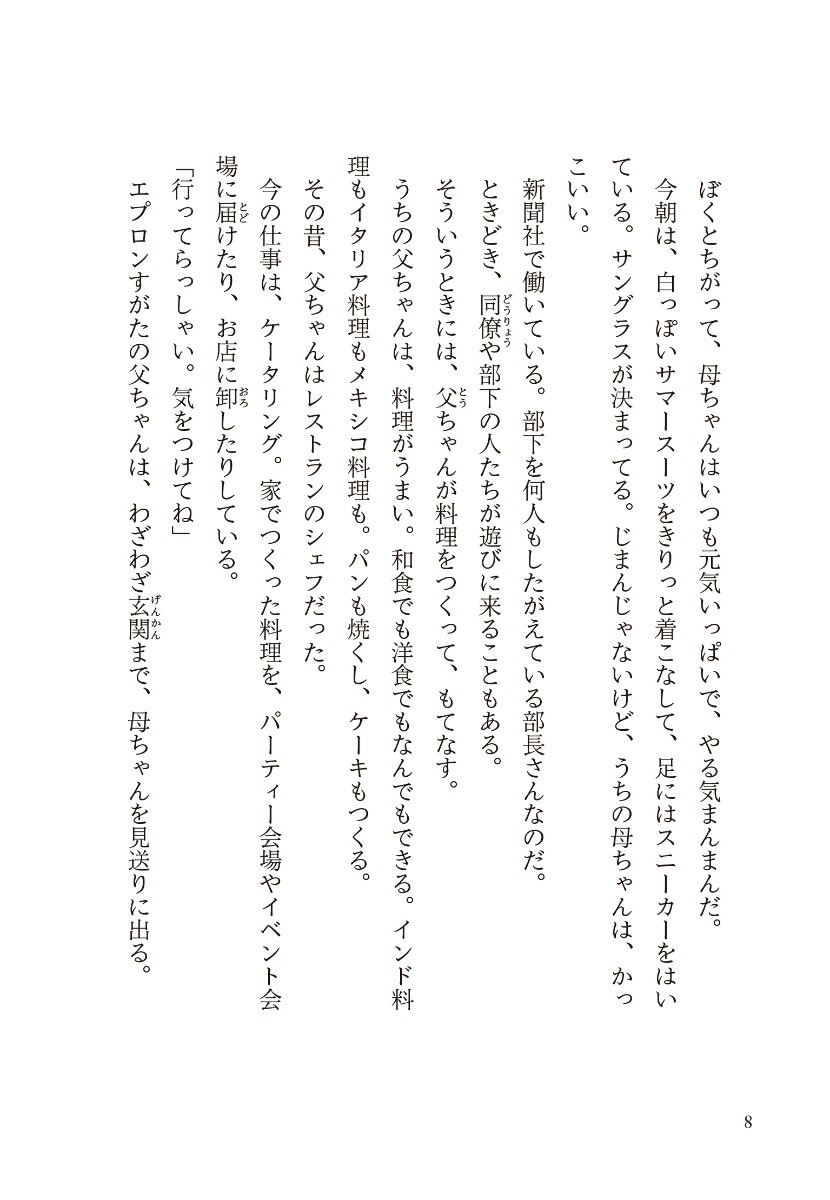 ぼくとちがって、母ちゃんはいつも元気いっぱいで、やる気まんまんだ。
今朝は、白っぽいサマースーツをきりっと着こなして、足にはスニーカーをはい
ている。サングラスが決まってる。じまんじゃないけど、うちの母ちゃんは、かっ
こいい。
新聞社で働いている。部下を何人もしたがえている部長さんなのだ。
ときどき、同僚や部下の人たちが遊びに来ることもある。
どうりょう
そういうときには、父ちゃんが料理をつくって、もてなす。
とう
うちの父ちゃんは、料理がうまい。和食でも洋食でもなんでもできる。インド料
理もイタリア料理もメキシコ料理も。パンも焼くし、ケーキもつくる。
その昔、父ちゃんはレストランのシェフだった。
今の仕事は、ケータリング。家でつくった料理を、パーティー会場やイベント会
場に届けたり、お店に卸したりしている。
とど
おろ
「行ってらっしゃい。気をつけてね」
エプロンすがたの父ちゃんは、わざわざ玄関まで、母ちゃんを見送りに出る。
げんかん
8